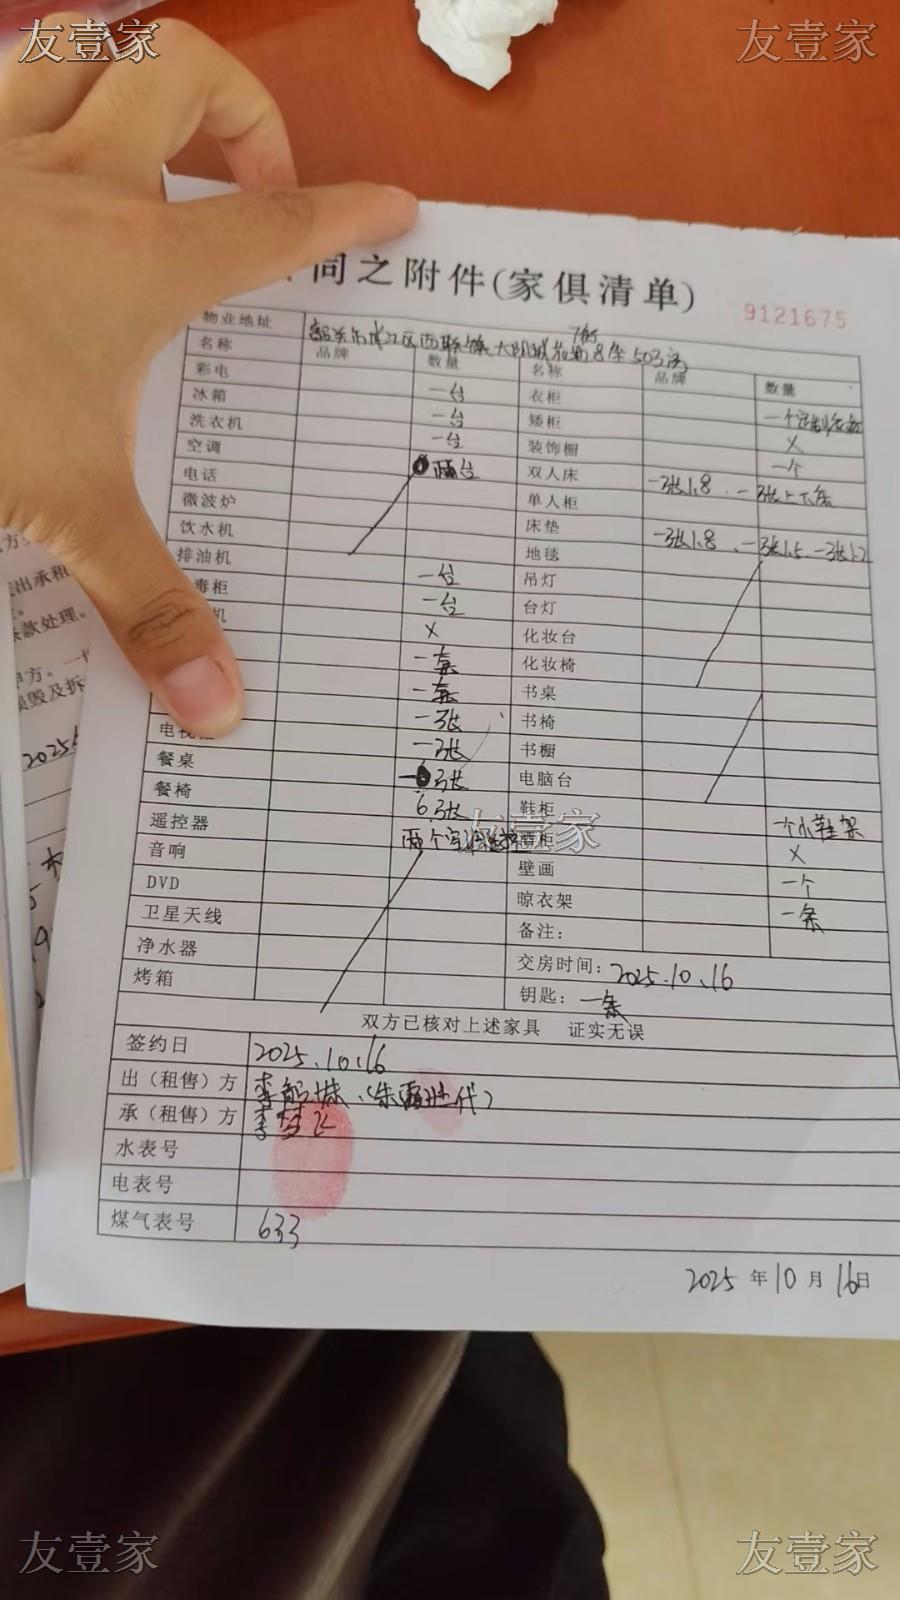 友壹家
友壹家
同之附件(家俱清单)
9121675
物业地址
西联镇大明城 503房
名称 品牌 数量 名称 品牌 数量
彩电 一台 衣柜
冰箱 一台 矮柜 X
洗衣机 一台 装饰橱 一个
空调 两台 双人床 一张1.8 一张上下床
电话 单人柜
微波炉 床垫 一张1.8、一张1.5 一张1.2
饮水机 地毯
排油机 一台 吊灯
毒柜 一台 台灯
机 X 化妆台
一套 化妆椅
一套 书桌
一张 书椅
电视 一张 书橱
餐桌 一张 电脑台
餐椅 6张 鞋柜 一个小鞋架
遥控器 两个空调遥控 酒柜 X
友壹家
音响 壁画 一个
DVD 晾衣架 一条
卫星天线 备注:
净水器 交房时间: 2025.10.16
烤箱 钥匙: 一条
双方已核对上述家具 证实无误
签约日 2025.10.16
出(租售)方
承(租售)方 李梦飞
水表号
电表号
煤气表号 633
2025年10月16日
方。一
损毁及拆
出承租
条款处理。
2025
友壹家
友壹家